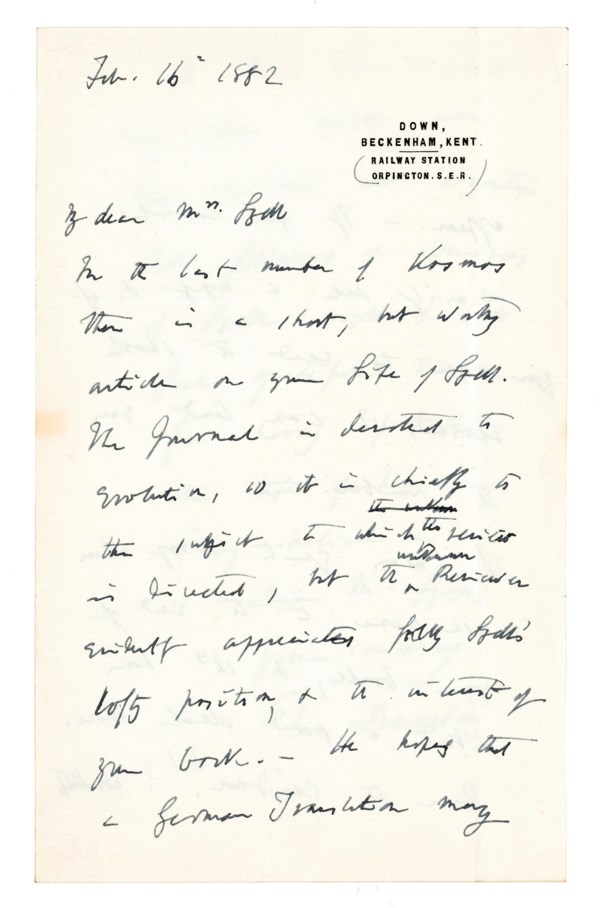 Feb. 16th 1882
DOWN,
BECKENHAM, KENT.
RAILWAY STATION
ORPINGTON. S.E.R.
My dear Mrs. Lyell
In the last number of Kosmos
there is a short, but worthy
article on your Life of Lyell.
The Journal is devoted to
Evolution, so it is chiefly to
the unknown
this subject to which the review
unknown
is directed, but the Reviewer
evidently appreciates fully Lyell's
lofty position, & the interest of
your book. — He hopes that
a German Translation may